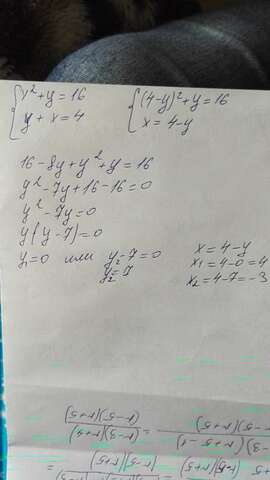 x² + y = 16
y + x = 4
(4-y)² + y = 16
x = 4-y
16 - 8y + y² + y = 16
y² - 7y + 16 - 16 = 0
y² - 7y = 0
y(y-7) = 0
y₁ = 0 или y₂ - 7 = 0
y₂ = 7
x = 4-y
x₁ = 4-0 = 4
x₂ = 4-7 = -3